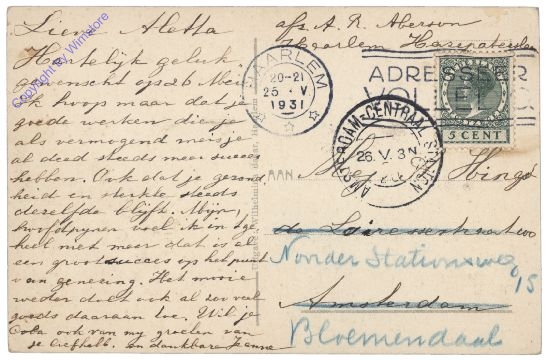 Lieve Aletta
Hartelijk geluk
gewenscht op 26 Mei
ik hoop maar dat je
goede werken die je
als vermogend meisje
al deed steeds meer succes
hebben. Ook dat je gezond
heid en sterkte steeds
dezelfde blijft. Mijn
hoofdpijnen voel ik in 't ge
heel niet meer dat is al
een groot succes op het punt
van genezing. Het mooie
weder doet ook al zoo veel
goeds daaraan toe. Wil je
Coba ook van mij groeten van
je liefheb. en dankbare Jeanne
afz. A. R. Aberson
Haarlem
HAARLEM
20-21
25 V
1931
ADRESSEER
VOLLEDIG
5 CENT
AMSTERDAM-CENTRAAL STATION
26.V.3N
AAN
Mej.
de Lairessestraat 100
Noorder Stationsweg
15
Amsterdam
Bloemendaal
Copyright by Wimstore